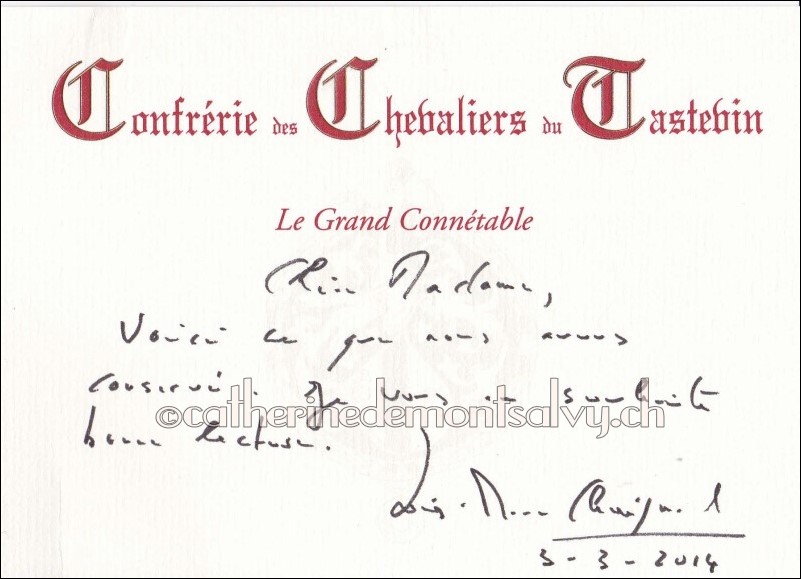 Confrérie des Chevaliers du Tastevin
Le Grand Connétable
Chère Madame,
Voici ce que nous avons
conservé. Je vous en souhaite
©catherinedemontsalvy.ch
bonne lecture.
Louis-Marc Chevignard
3-3-2014